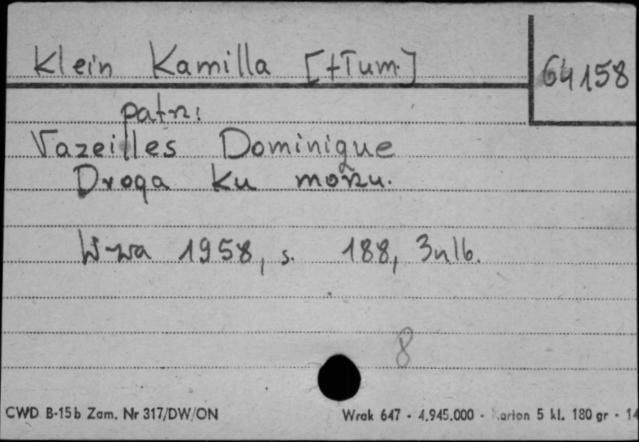 Klein Kamilla [tłum.]
64158
patrz:
Vazeilles Dominique
Droga ku morzu.
W-wa 1958, s. 188, 3nlb.
8
CWD B-15b Zam. Nr 317/DW/ON
Wrak 647 - 4.945.000 - arton 5 kl. 180 gr - 14